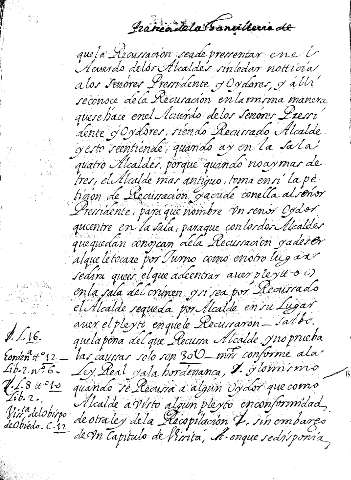 Practica de la Chancilleria de
que la Recusacion se a de pressentar en el
Acuerdo de los Alcaldes sin dar notticia
a los Señores Presidente y Oydores, y alli
se conoce de la Recusacion en la misma manera
que se hace en el Acuerdo de los Señores Presi
dente y Oydores, siendo Recusado Alcalde
y esto se entiende, quando ay en la sala
quatro Alcaldes, porque quando no ay mas de
tres, el Alcalde mas antiguo, toma en si la pe
tizion de Recusacion y acude con ella al señor
Presidente, para que nombre Un señor Oydor
que entre en la sala, para que con los dos Alcaldes
que quedan conozcan de la Recusacion y a de ser
al que le tocare por Turno, como en otro lugar
se dira que es, el que a de entrar a ver pleyto
en la sala del crimen, y si sea por Recusado
el Alcalde se queda por Alcalde en su Lugar
a ver el pleyto en que le Recusaron
que la pena del que Recusa Alcalde y no prueba
las caussas solo son 30U mrs conforme a la
Ley Real y a la hordenanca, y lo mismo
quando se Recusa a algun Oydor que como
Alcalde a visto algun pleyto en conformidad
de otra ley de la Recopilacion, sin embargo
de Un Capitulo de Visita, en que se disponia,
L. 16.
n.º 12
Lib. 2. n.º 6.
L. 8 n.º 10
Lib. 2.
Vissta del Obispo
de Obiedo. C. 32